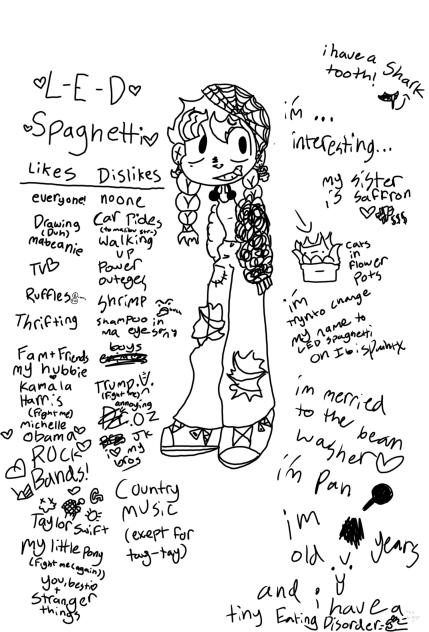 L-E-D
Spaghetti
Likes
everyone!
Drawing
(Duh)
mabeanie
TV
Ruffles
Thrifting
Fam + Friends
my hubbie
kamala
Harris
(fight me)
michelle
obama
ROCK
Bands!
Taylor Swift
My little pony
(fight me(again))
you, bestio
+
stranger
things
Dislikes
noone
Car rides
walking
up
Power
outeges
shrimp
shampoo in
ma eye
boys
Trump.
(fight me)
annoying
OZ
JK
i my
bros
Country
music
(exept for
tay-tay)
i have a Shark
tooth!
i'm ...
interesting...
my sister
is saffron
cats
in
flower
pots
i'm
tryn to change
my name to
LED spaghetti
on
i'm merried
to the bean
washer
i'm Pan
im
old
years
and i have a
tiny Eating Disorder